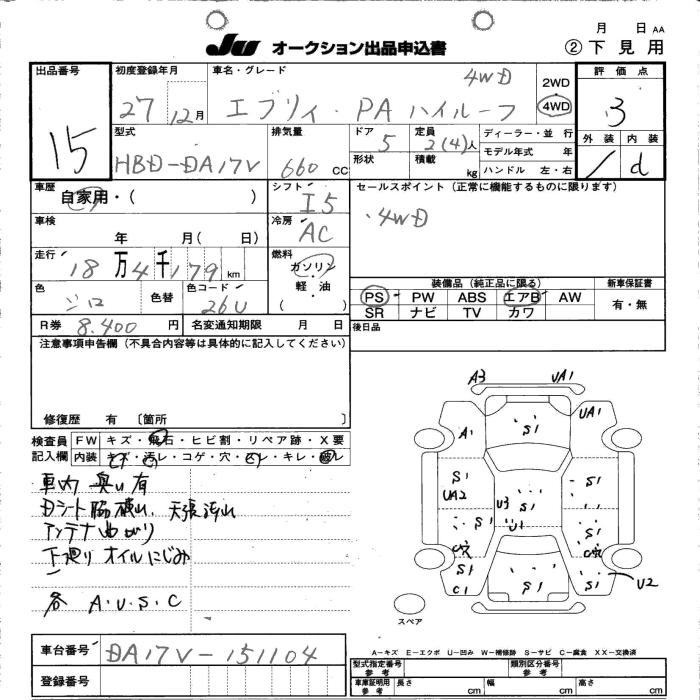 JU オークション出品申込書
月 日 AA
② 下見用
出品番号
15
初度登録年月
27 12月
車名・グレード
4WD
エブリィ・PA ハイルーフ
2WD
4WD
評価点
3
外装 内装
d
型式
HBD-DA17V
排気量
660 CC
ドア
5
形状
定員
2(4)人
積載
kg
ディーラー・並 行
モデル年式 年
ハンドル 左・右
車歴
自家用・( )
シフト
I5
セールスポイント(正常に機能するものに限ります)
・4WD
車検
年 月( 日)
冷房
AC
走行
18万4千179km
燃料
ガソリン
軽・油
( )
色
シロ
色替
色コード
26U
装備品(純正品に限る)
PS PW ABS エアB AW
SR ナビ TV カワ
新車保証書
有・無
R券 8.400 円
名変通知期限 月 日
後日品
注意事項申告欄(不具合内容等は具体的に記入してください)
修復歴 有 〔箇所 〕
検査員記入欄
FW キズ・飛石・ヒビ割・リペア跡・X要
内装 キズ・汚レ・コゲ・穴・スレ・キレ・破レ
車内 臭い有
Dシート脇破れ 天張汚れ
アンテナ曲がり
下廻り オイルにじみ
各 A.U.S.C
A3 UA1
UA1
A1
S1
S1
UA2
S1
U3
S1
U1
S1
S1
C穴
C穴
S1
C1
S1
S1
S1
U2
スペア
車台番号 DA17V-151104
登録番号
A-キズ E-エクボ U-凹み W-補修跡 S-サビ C-腐食 XX-交換済
型式指定番号 参考
類別区分番号 参考
車庫証明用 参考
長さ cm 幅 cm 高さ cm